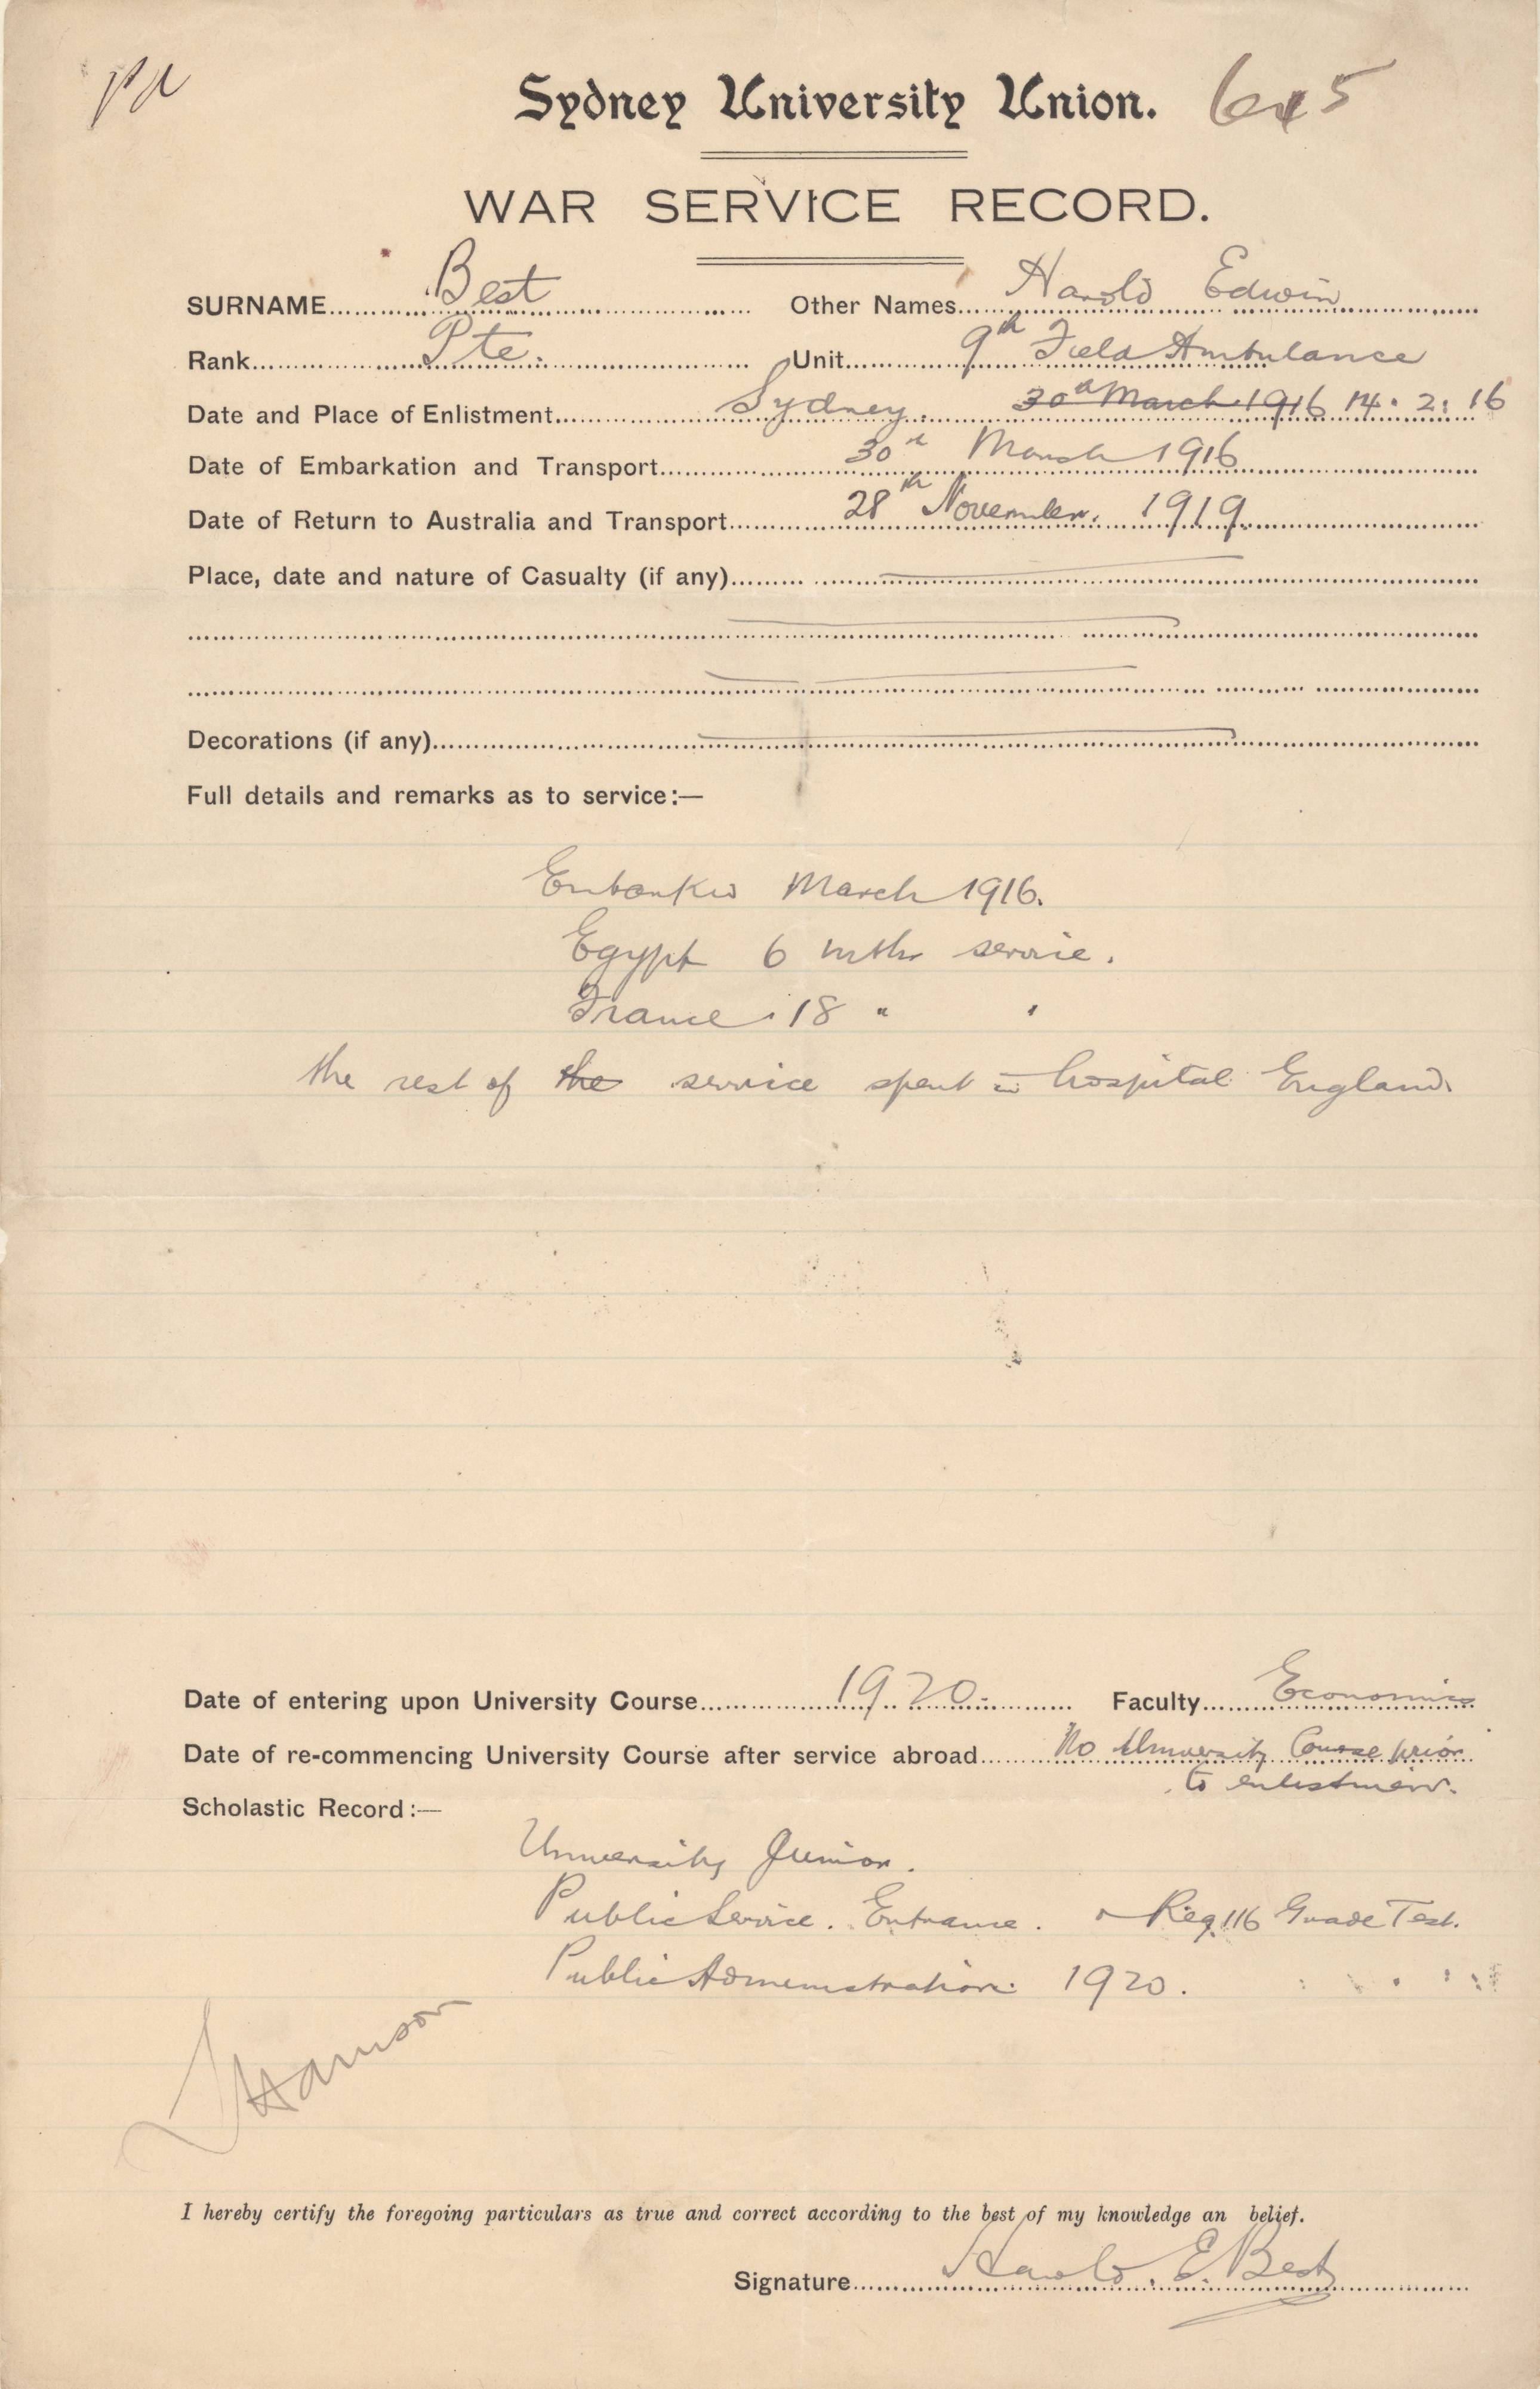 Sydney University Union.
WAR SERVICE RECORD.
SURNAME Best Other Names Harold Edwin
Rank Pte. Unit 9th Field Ambulance
Date and Place of Enlistment Sydney. 30th March 1916 14. 2. 16
Date of Embarkation and Transport 30th March 1916
Date of Return to Australia and Transport 28th November. 1919.
Place, date and nature of Casualty (if any)
Decorations (if any)
Full details and remarks as to service:—
Embarked March 1916.
Egypt 6 mths service.
France 18 " "
the rest of the service spent in hospital England.
Date of entering upon University Course 1920 Faculty Economics
Date of re-commencing University Course after service abroad No University Course prior
to enlistment.
Scholastic Record:—
University Junior.
Public Service. Entrance. Reg. 116 Grade Test.
Public Admenistration 1920.
Harrison
I hereby certify the foregoing particulars as true and correct according to the best of my knowledge an belief.
Signature Harold. E. Best